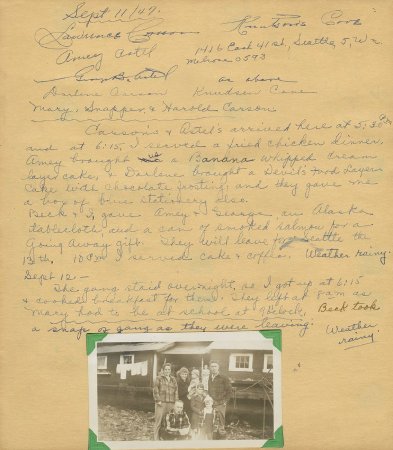 Sept 11/47.
Lawrence Carson
Knudson's Cove
Amey Astel
1416 East 41 st., Seattle, 5, Wn.
Melrose 0593
as above
Darlene Carson Knudsen Cove
Mary, Snapper, & Harold Carson
Carson's & Astel's arrived here at 5:30 Pm
and at 6:15, I served a fried chicken dinner,
Amey brought us a Banana whipped cream
layer cake, & Darlene brought a Devil's Food Layer
Cake with chocolate frosting; and they gave me
a box of blue stationery also.
Beck & I, gave Amey & George, an Alaska
tablecloth, and a can of smoked salmon for a
going away gift. They will leave for Seattle the
13th. 10 Pm I served cake & coffee. Weather rainy.
Sept 12 —
The gang staid overnight, so I got up at 6:15
& cooked breakfast for them. They left at 8 am as
Mary had to be at school at 9 o'clock. Beck took
a snap of gang as they were leaving.
Weather
rainy.